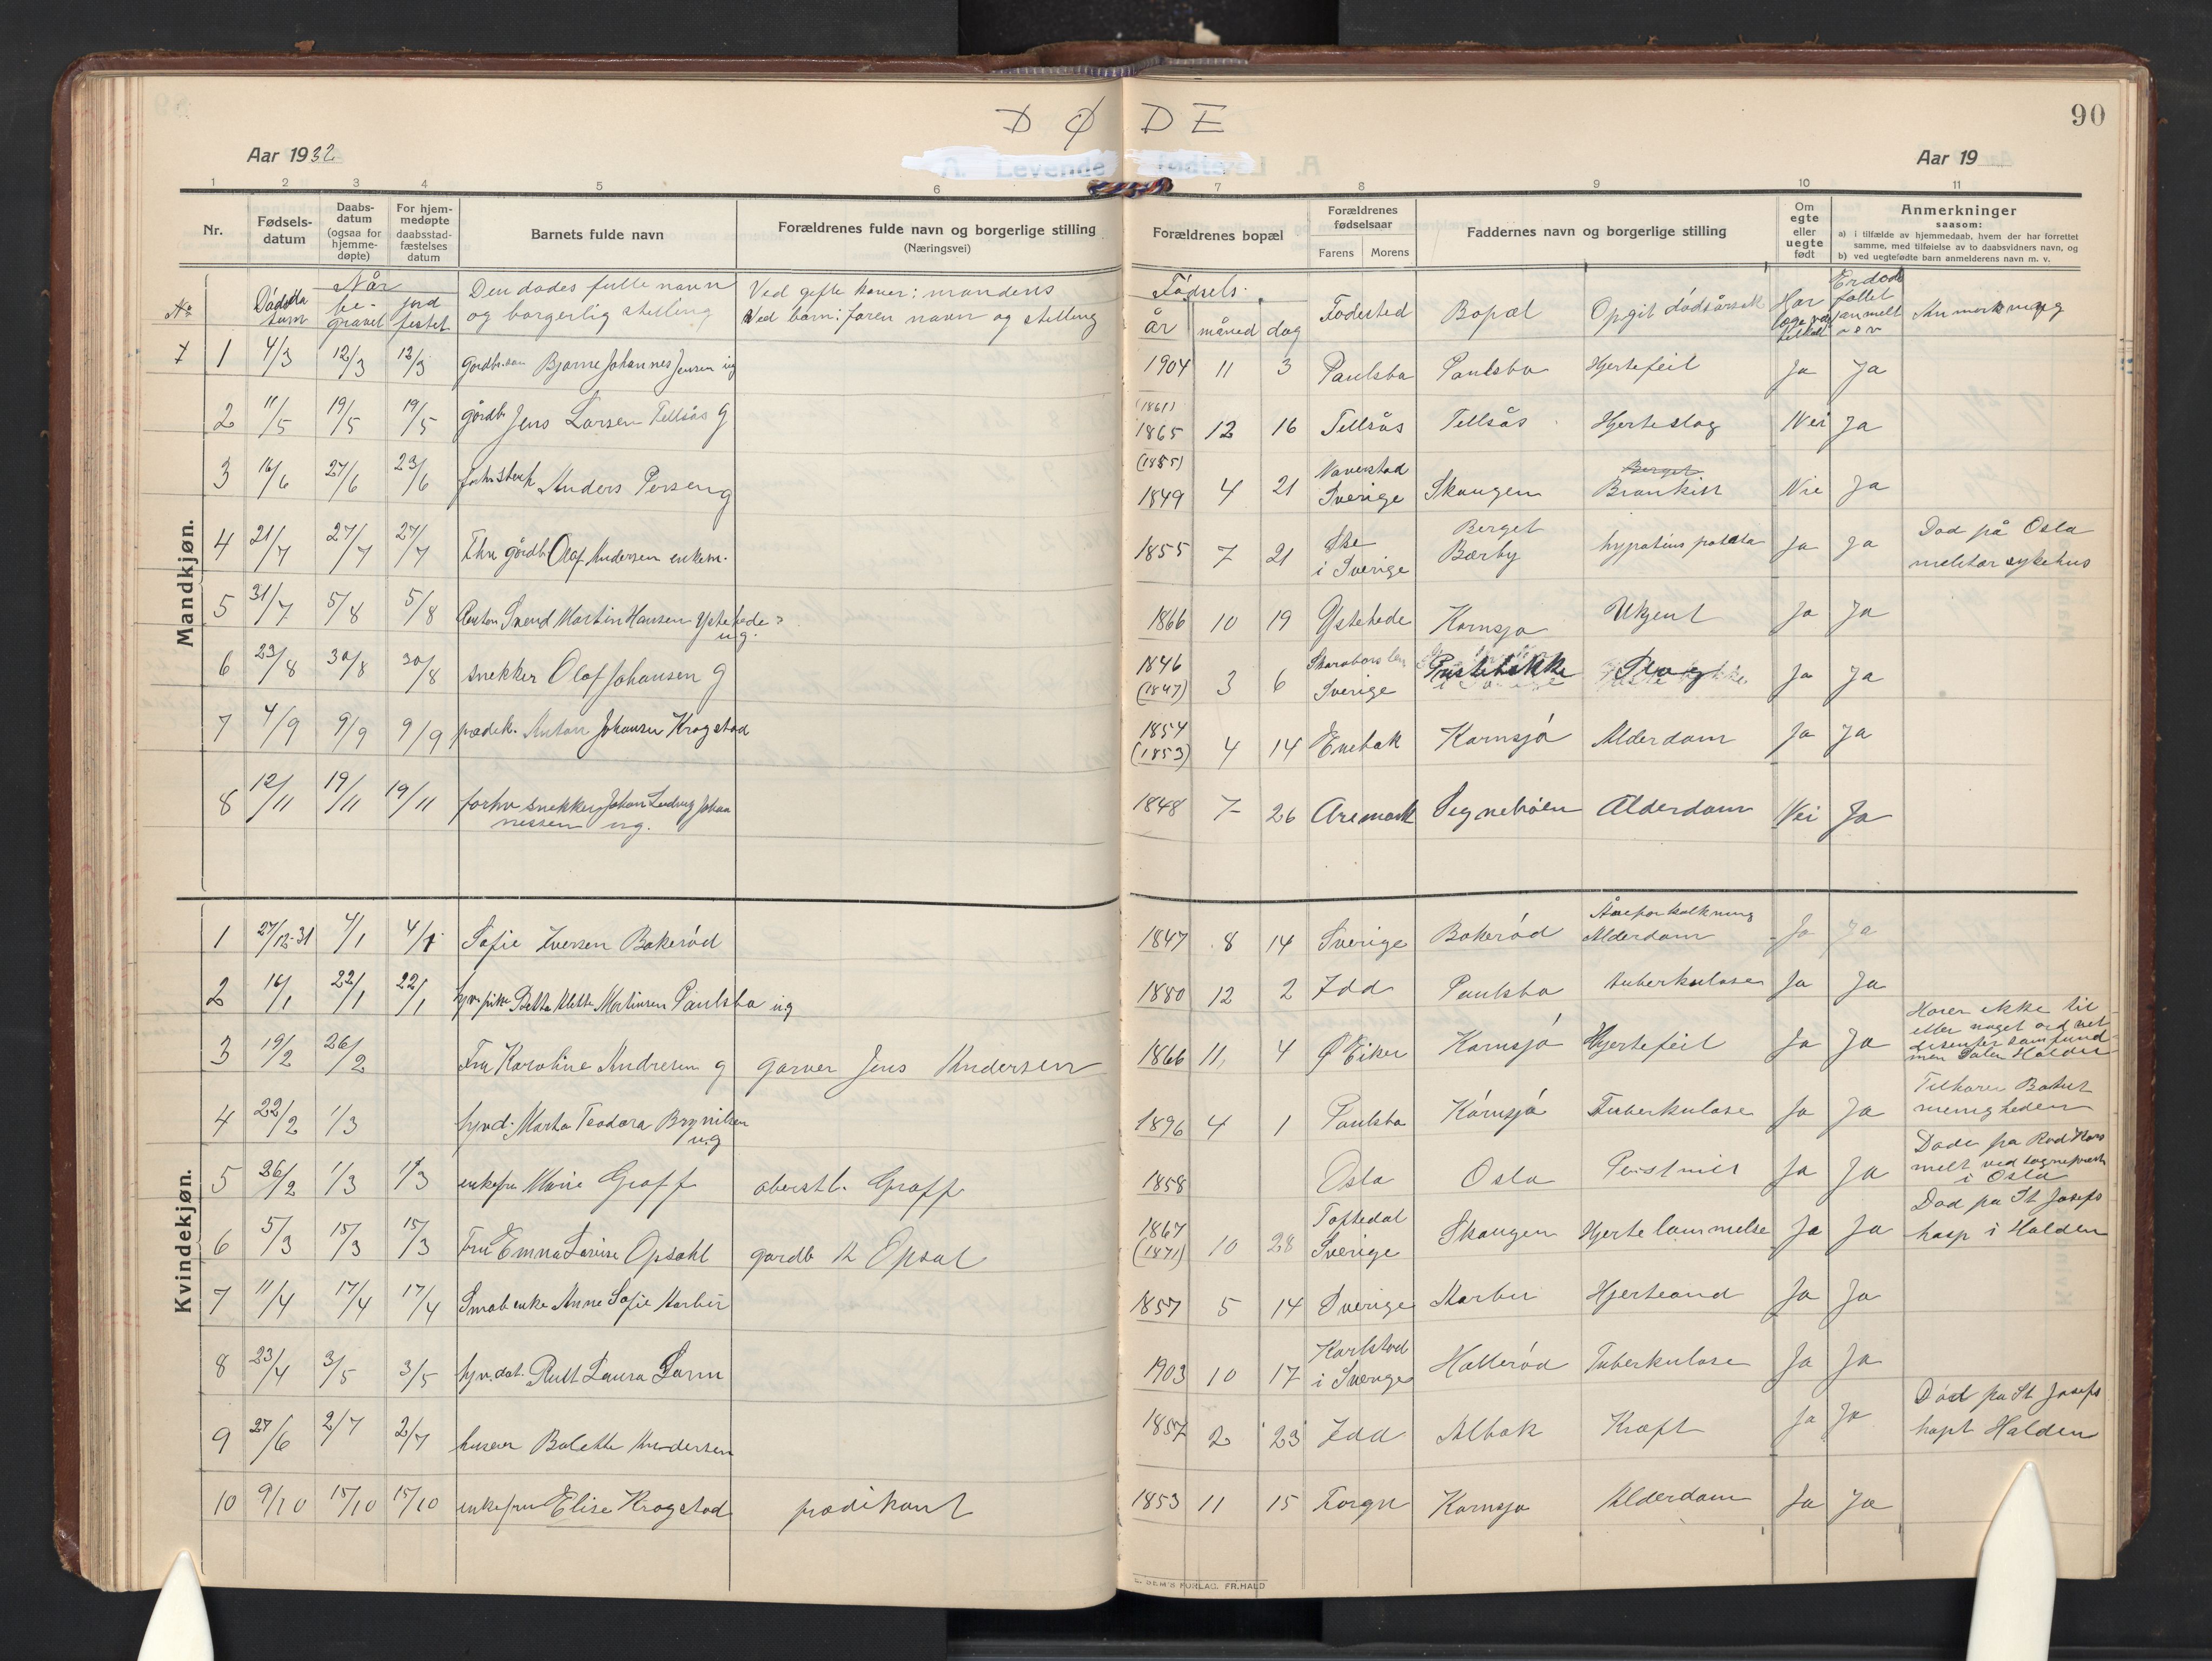 D Ø D E
90
Aar 1932
Aar 19
A. Levende fødte
1 2 3 4 5 6 7 8 9 10 11
Nr.
Fødsels-
datum
Daabs-
datum
(ogsaa for
hjemme-
døpte)
For hjem-
medøpte
daabsstad-
fæstelses
datum
Barnets fulde navn
Forældrenes fulde navn og borgerlige stilling
(Næringsvei)
Forældrenes bopæl
Forældrenes
fødselsaar
Farens Morens
Faddernes navn og borgerlige stilling
Om
egte
eller
uegte
født
Anmerkninger
saasom:
a) i tilfælde av hjemmedaab, hvem der har forrettet
samme, med tilføielse av to daabsvidners navn, og
b) ved uegtefødte barn anmelderens navn m. v.
No Dødsda
tum
Når
be-
gravet
jord
festet
Den dødes fulle navn
og borgerlig stilling
Ved gifte koner: mandens
Ved barn: faren navn og stilling
Fødsels-
år måned dag
Fødested Bopæl Opgit dødsårsak
Anmerkning
Mandkjøn.
1 4/3 12/3 12/3 Bjarne Johannes Jensen ug 1904 11 3 Paulsbo Paulsbo Hjertefeil Ja Ja
2 11/5 19/5 19/5 gårdb Jens Larsen Tellsås g (1861) 1865 12 16 Tellsås Tellsås Hjerteslag Nei Ja
3 16/6 27/6 23/6 Anders Persen g (1855) 1849 4 21 Naverstad Sverige Skaugen Ja
4 21/7 27/7 27/7 Fhv gårdb Olaf Andersen enkem. 1855 7 21 i Sverige Berget Bærby Ja Ja Død på Oslo
militær sykehus
5 31/7 5/8 5/8 Anton Svend Martin Hansen Ystehede
ug. 1866 10 19 Ystehede Kornsjø Ukjent Ja Ja
6 23/8 30/8 30/8 snekker Olaf Johansen g 1846 (1847) 3 6 Sverige Prestebakke Slag Ja Ja
7 4/9 9/9 9/9 prædik. Anton Johansen Krogstad 1854 (1853) 4 14 Enebak Kornsjø Alderdom Ja Ja
8 12/11 19/11 19/11 forhv snekker Johan Ludvig Johan
nessen ug. 1848 7 26 Aremark Alderdom Nei Ja
Kvindekjøn.
1 27/12-31 4/1 4/1 Sofie Iversen Bakerød 1847 8 14 Sverige Bakerød Åreforkalkning
Alderdom Ja Ja
2 16/1 22/1 22/1 Martinsen Paulsbo ug 1880 12 2 Idd Paulsbo tuberkulose Ja Ja
3 19/2 26/2 Fru Karoline Andresen g garver Jens Andersen 1866 11 4 Ø Eiker Kornsjø Hjertefeil Ja Ja Hører ikke til
4 22/2 1/3 Marta Teodora Brynilsen
ug 1896 4 1 Paulsbo Kornsjø Tuberkulose Ja Ja Tilhører
menigheden
5 26/2 1/3 1/3 enkefru Marie Graff oberstl. Graff 1858 Oslo Oslo Ja Ja
i Oslo
6 5/3 15/3 15/3 Fru Emma Lovise Opsahl gardb K Opsal 1867 (1871) 10 28 Toftedal Sverige Skaugen Hjertelammelse Ja Ja Død på St Josefs
hosp i Halden
7 11/4 17/4 17/4 Småb enke Anne Sofie Korbu 1857 5 14 Sverige Korbu Hjerteond Ja Ja
8 23/4 3/5 3/5 hjv. dat. Rutt Laura 1903 10 17 Karlstad i Sverige Hallerød Tuberkulose Ja Ja
9 27/6 2/7 2/7 Bolette Andersen 1857 2 23 Idd Albak Kræft Ja Ja Død på St Josefs
hospt Halden
10 9/10 15/10 15/10 enkefru Elise Krogstad prædikant 1853 11 15 Torgn Kornsjø Alderdom Ja Ja
E. SEM'S FORLAG. FR.HALD